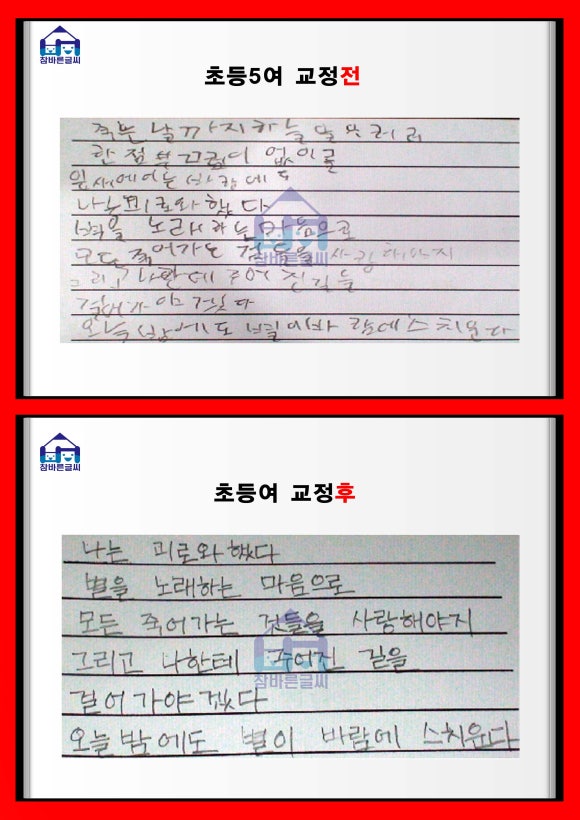 참바른글씨
초등5여 교정전
죽는 날까지하늘을 우러러
한 점 부끄럼이 없이를
잎새에이는 바람에도
나는괴로와했다
별을 노래하는 마음으로
모든 죽어가는 것들을 사랑해야지
그리고 나한테 주어 진길을
걸어가야겠다
오늘 밤에도 별이바 람에스치운다
참바른글씨
참바른글씨
초등여 교정후
나는 괴로와했다
별을 노래하는 마음으로
모든 죽어가는 것들을 사랑해야지
그리고 나한테 주어진 길을
걸어가야겠다
오늘밤에도 별이 바람에 스치운다
참바른글씨